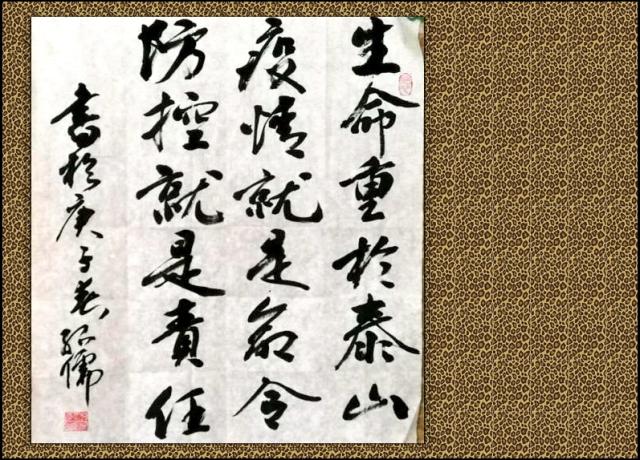 生命重於泰山
疫情就是命令
防控就是責任
書於庚子春 紹儒